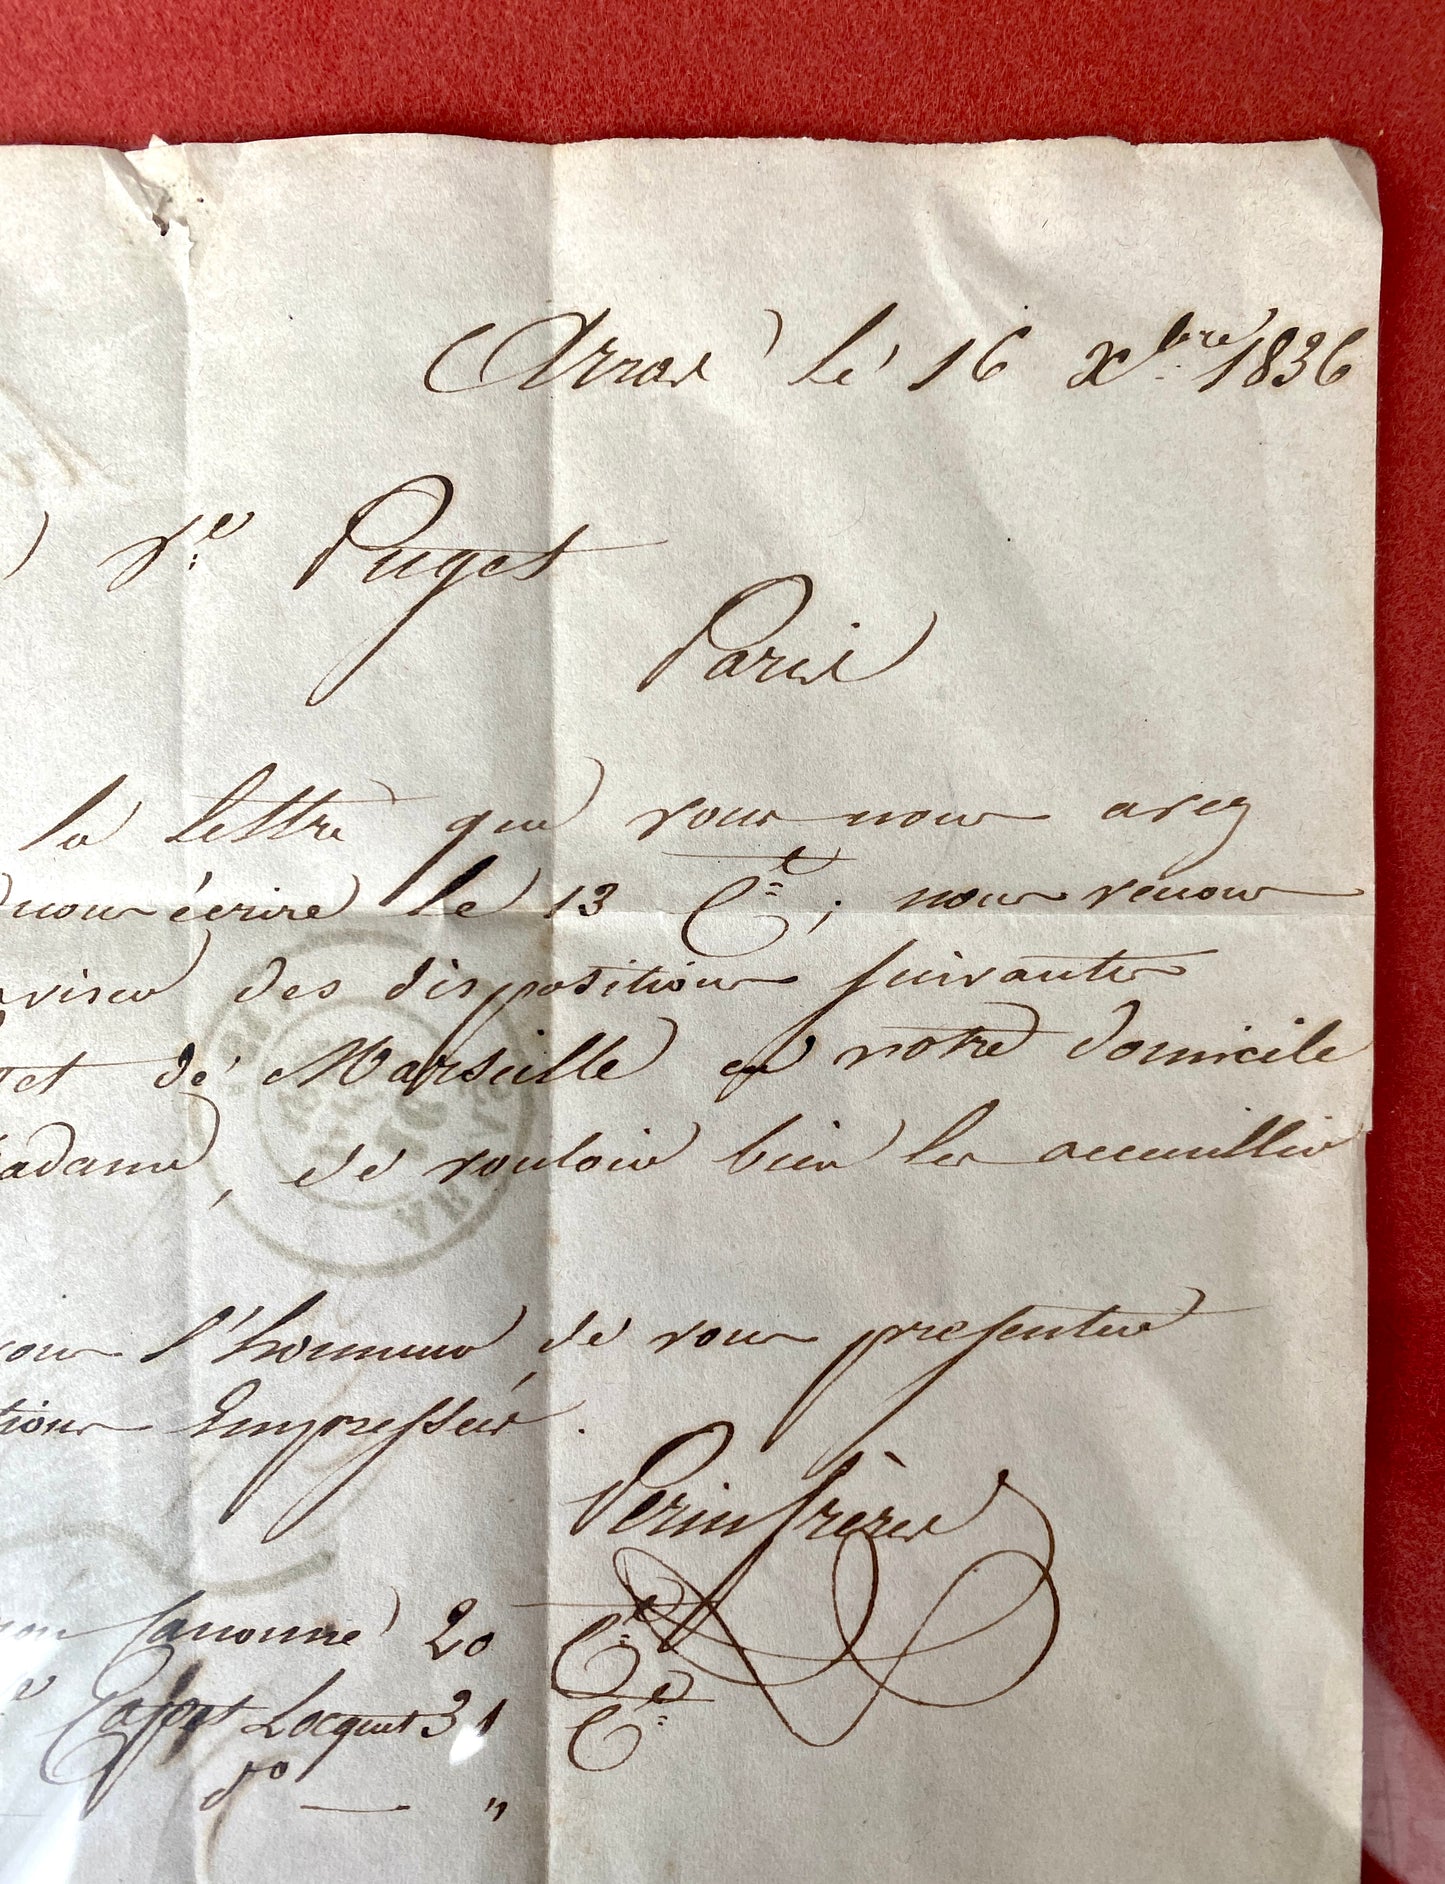 Arras le 16 Xbre 1836
Ve Puget
Paris
la lettre que vous nous avez
nous écrire le 13 Ct; nous venons
des dispositions suivantes
et de Marseille en votre domicile
adame, de vouloir bien les accueillir
l'honneur de vous presenter
tions Empressées.
Perin frères
20 Ct
Locquet 31 Ct
do — "
ARRAS